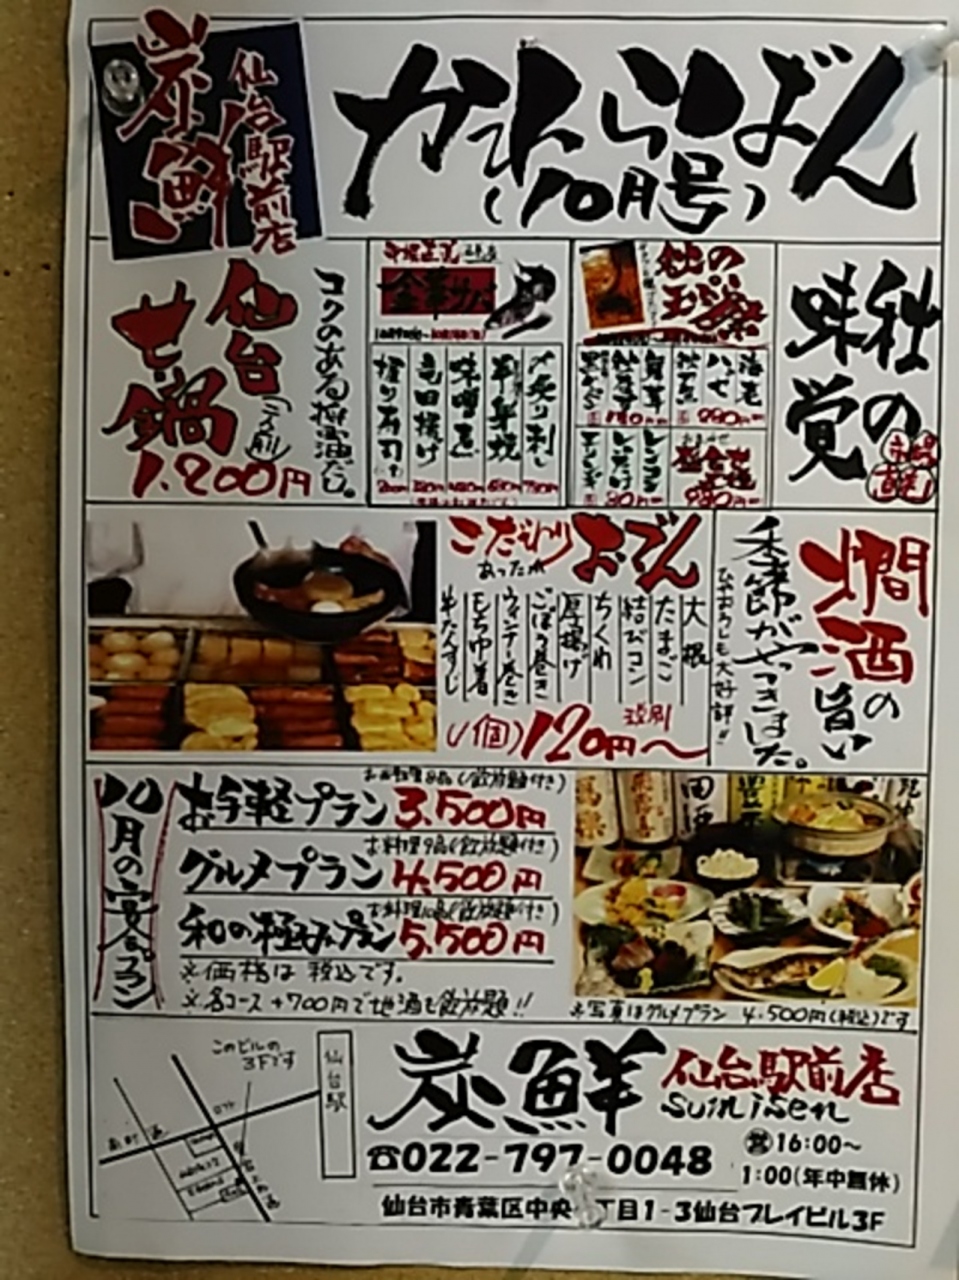 炭鮮
仙台駅前店
かわらばん
(10月号)
仙台
せり鍋
(一人前)
1.200円
コクのある醤油だし。
金華サバ
〆炙り刺し
半身焼
味噌煮
竜田揚げ
握り寿司
秋の
天ぷら
海老
ハゼ
舞茸
レンコン
しいたけ
エリンギ
盛合せ
秋の
味覚
こだわり
おでん
あったか
大根
たまご
結びコン
ちくわ
厚揚げ
ごぼう巻き
ウィンナー巻き
もちゆ着
牛たんすじ
(1個)120円〜
税別
燗酒の
旨い
季節がやってきました。
ひやおろしも大好評!!
10月の宴会プラン
お料理8品(飲放題付き)
お手軽プラン 3.500円
お料理9品(飲放題付き)
グルメプラン 4.500円
お料理10品(飲放題付き)
和の極みプラン 5.500円
※価格は税込です。
※各コース+700円で地酒も飲放題!!
※写真はグルメプラン 4.500円(税込)です
このビルの
3Fです
仙台駅
ロフト
炭鮮 仙台駅前店
sumisen
☎022-797-0048
営16:00〜
1:00(年中無休)
仙台市青葉区中央 丁目1-3仙台プレイビル3F